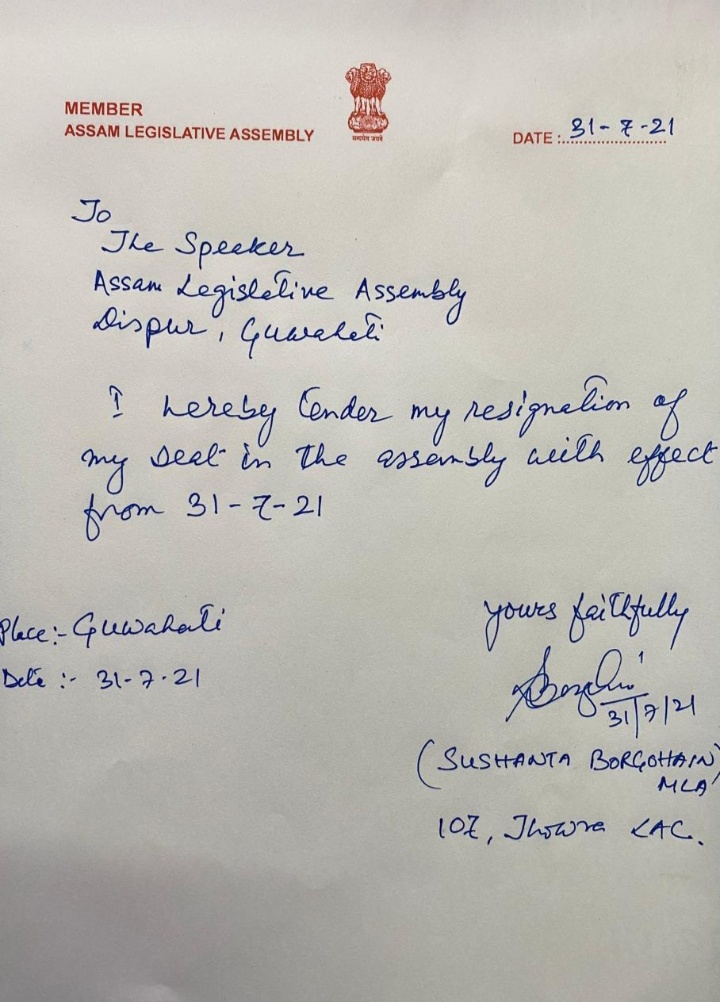 MEMBER
ASSAM LEGISLATIVE ASSEMBLY
सत्यमेव जयते
DATE : 31-7-21
To
The Speaker
Assam Legislative Assembly
Dispur, Guwahati
I hereby tender my resignation of
my seat in the assembly with effect
from 31-7-21
Place:- Guwahati
Date :- 31-7-21
yours faithfully
31/7/21
(SUSHANTA BORGOHAIN)
MLA
107, Thowra LAC.